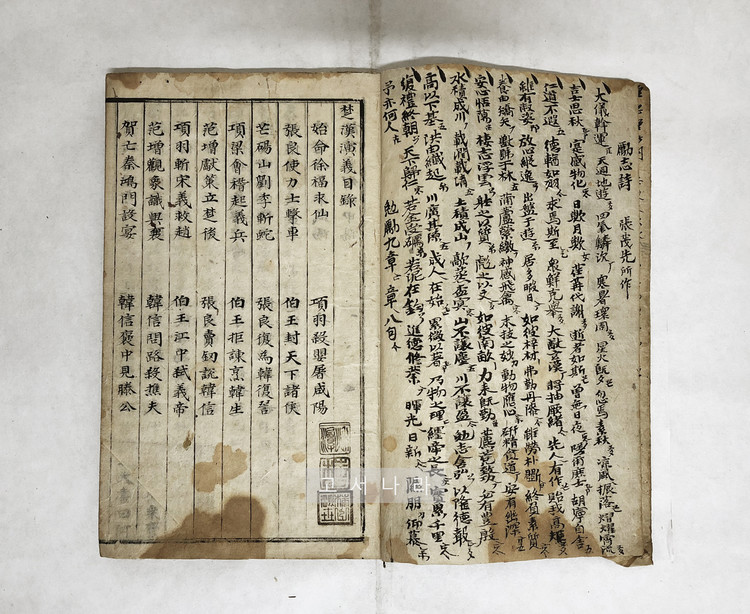 勵志詩 張茂先所作
大儀斡運 天廻地遊 四氣鱗次 寒暑環周 星火旣夕 忽焉素秋 凉風振落 熠燿宵流
吉士思秋 寔感物化 日歟月歟 荏苒代謝 逝者如斯 曾無日夜 嗟爾庶士 胡寧自舍
仁道不遐 德輶如羽 求焉斯至 衆鮮克擧 大猷玄漠 將抽厥緖 先人有作 貽我高矩
雖有淑姿 放心縱逸 出盤于遊 居多暇日 如彼梓材 弗勤丹漆 雖勞朴斲 終負素質
養由矯矢 獸號于林 蒲盧縈繳 神感飛禽 末技之妙 動物應心 硏精耽道 安有幽深
安心恬蕩 棲志浮雲 體之以質 彪之以文 如彼南畝 力耒旣勤 藨蓘致功 必有豊殷
水積成川 載瀾載淸 土積成山 歊蒸鬱冥 山不讓塵 川不讓盈 勉志含弘 以隆德聲
高以下基 洪由纖起 川廣其源 成人在始 累微以著 乃物之理 纆牽之長 實累千里
復禮終朝 天下歸仁 若金受礪 若泥在鈞 進德修業 暉光日新 隰朋仰慕
予亦何人 勉勵九章 章八句
楚漢演義目錄
始命徐福求仙 項羽殺嬰屠咸陽
張良使力士擊車 伯王封天下諸侯
芒碭山劉季斬蛇 張良復爲韓復讐
項梁會稽起義兵 伯王拒諫烹韓生
范增獻策立楚後 張良賣釼說韓信
項羽斬宋義救趙 伯王江中弑義帝
范增觀象識興衰 韓信問路殺樵夫
賀亡秦鴻門設宴 韓信褒中見滕公
고서나라